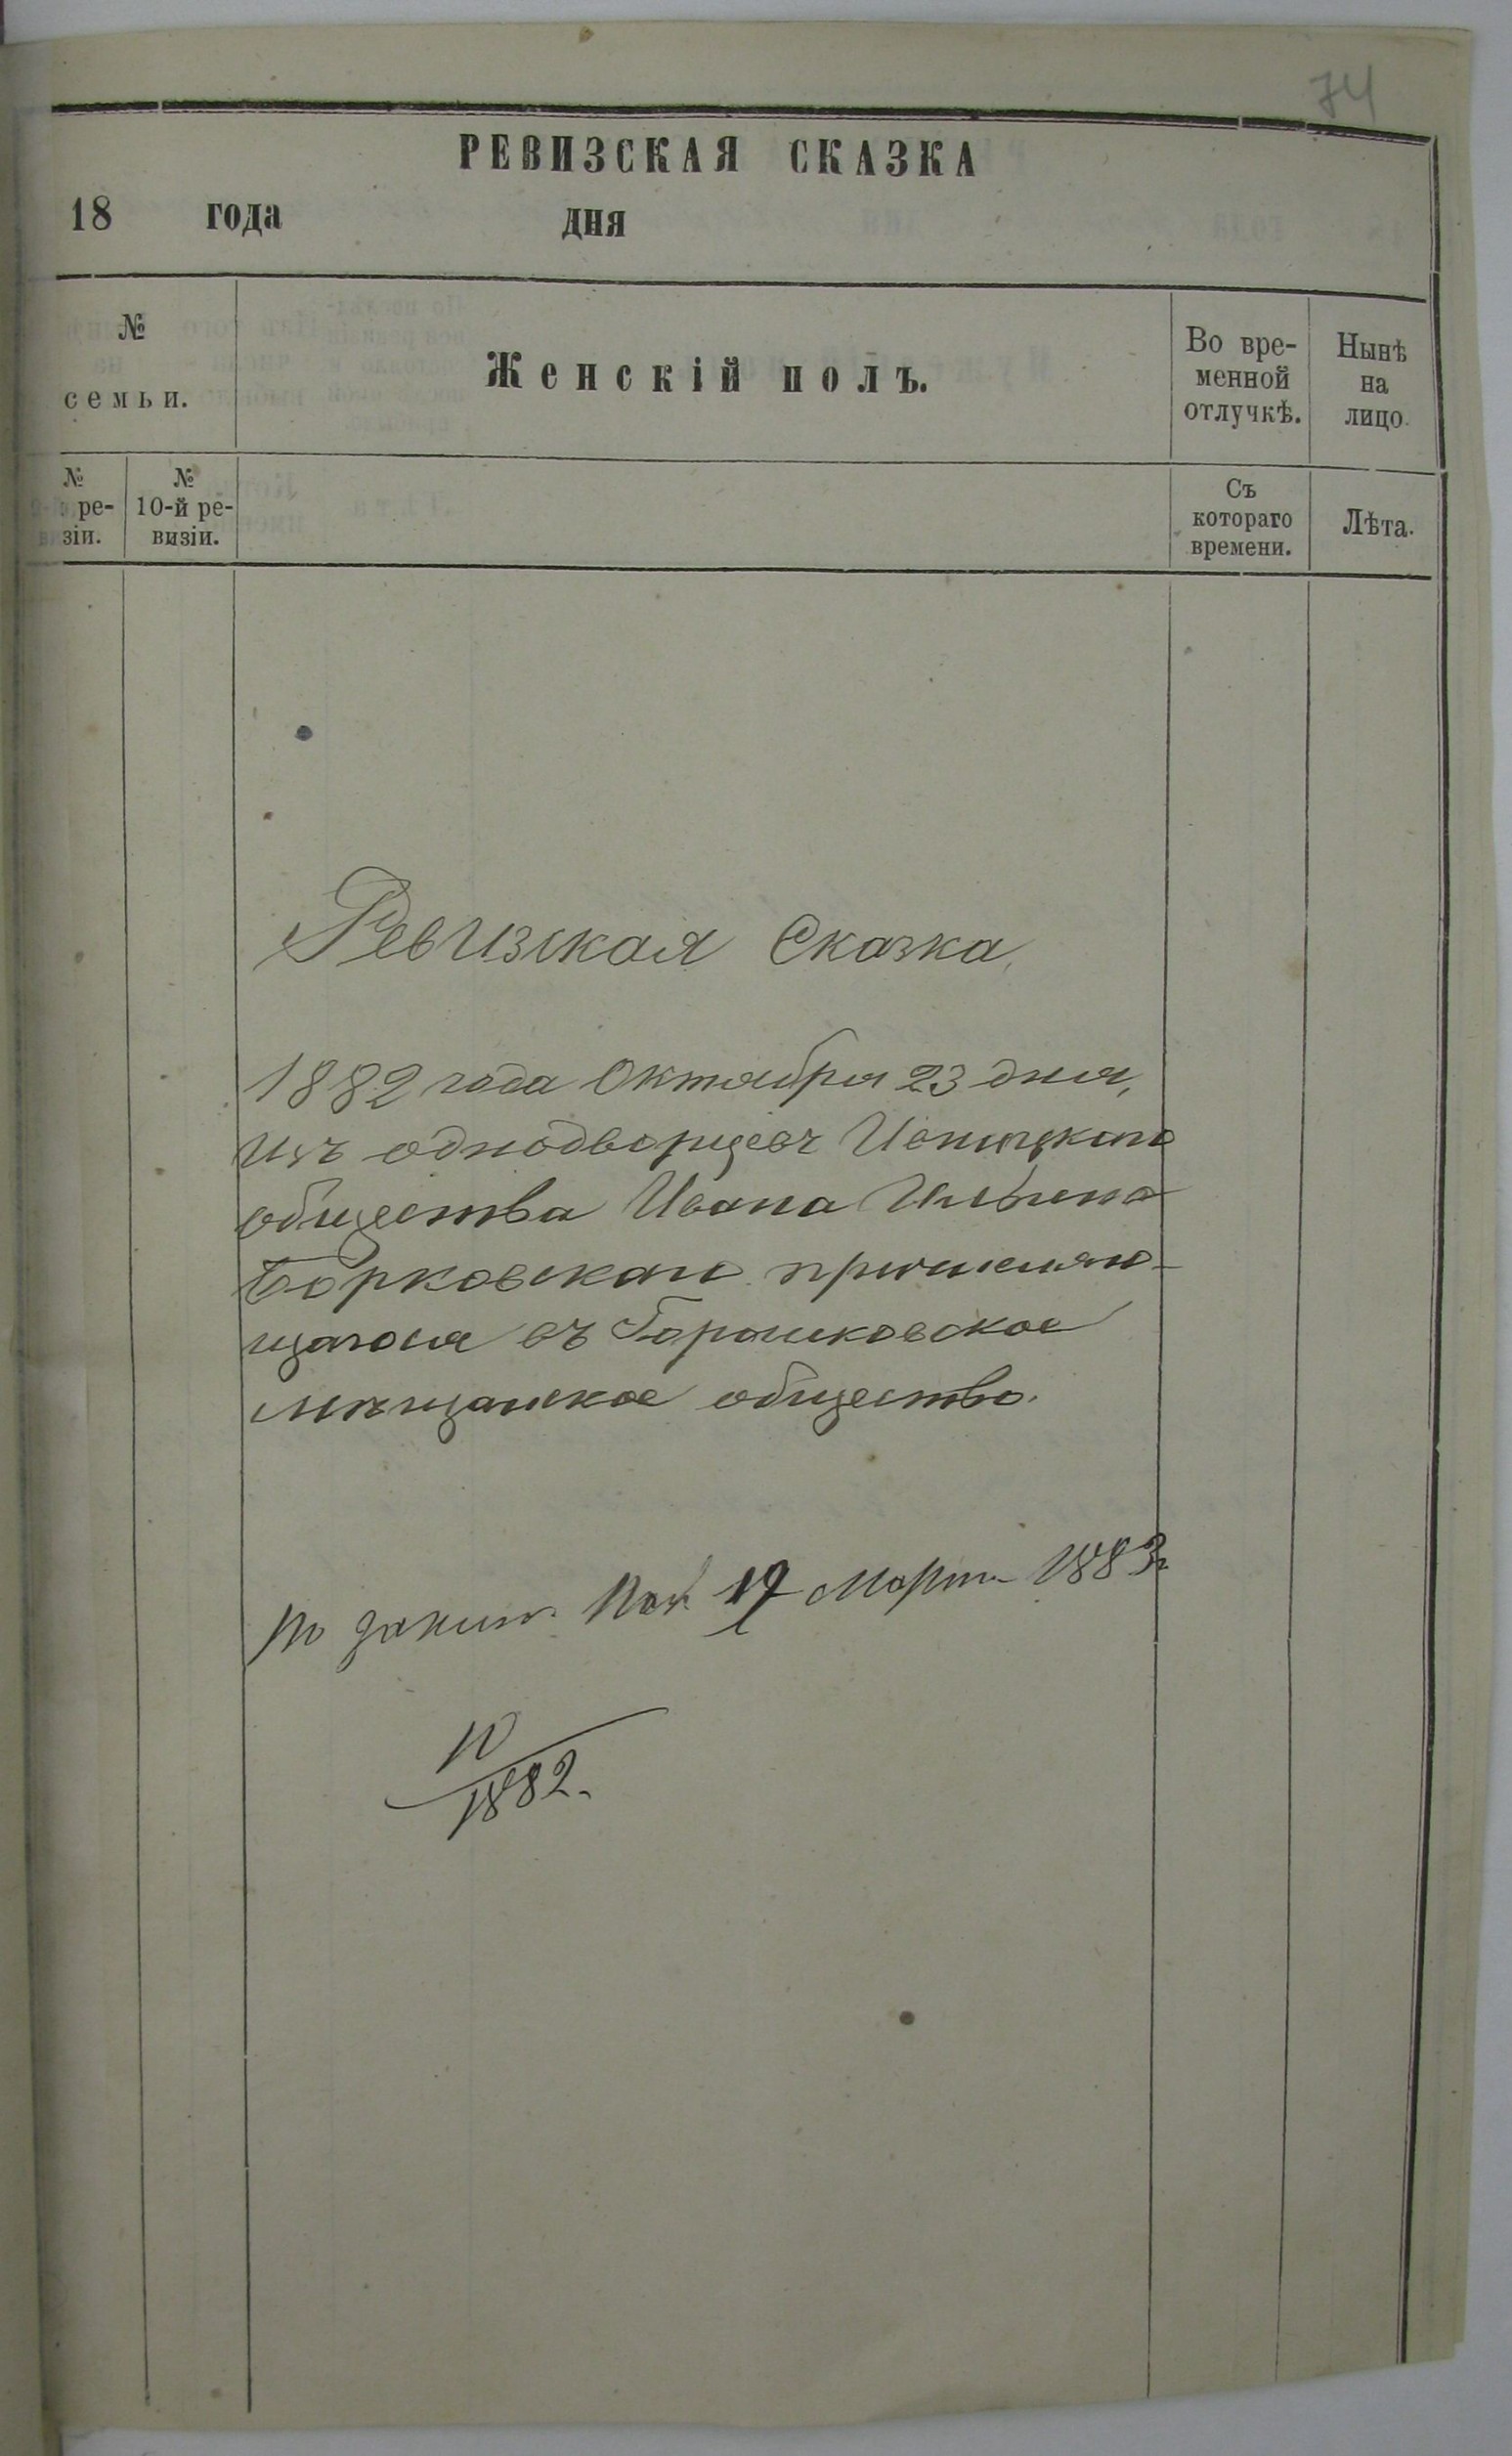 74
РЕВИЗСКАЯ СКАЗКА
18 года дня
№ семьи.
Женскій полъ.
Во вре-
менной
отлучкѣ.
Нынѣ
на
лицо.
№
ре-
зіи.
№
10-й ре-
визіи.
Съ
котораго
времени.
Лѣта.
Ревизская Сказка
1882 года Октября 23 дня,
Изъ однодворцевъ Ивницкаго
общества Ивана Ильина
Борковскаго причисляю-
щагося въ Горошковское
мѣщанское общество.
По 19 Марта 1883
10
1882.